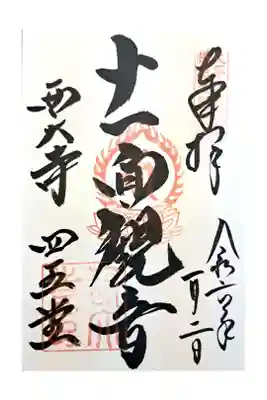 奉拝
令和六年
一月二日
十一面観音
西大寺 四王堂